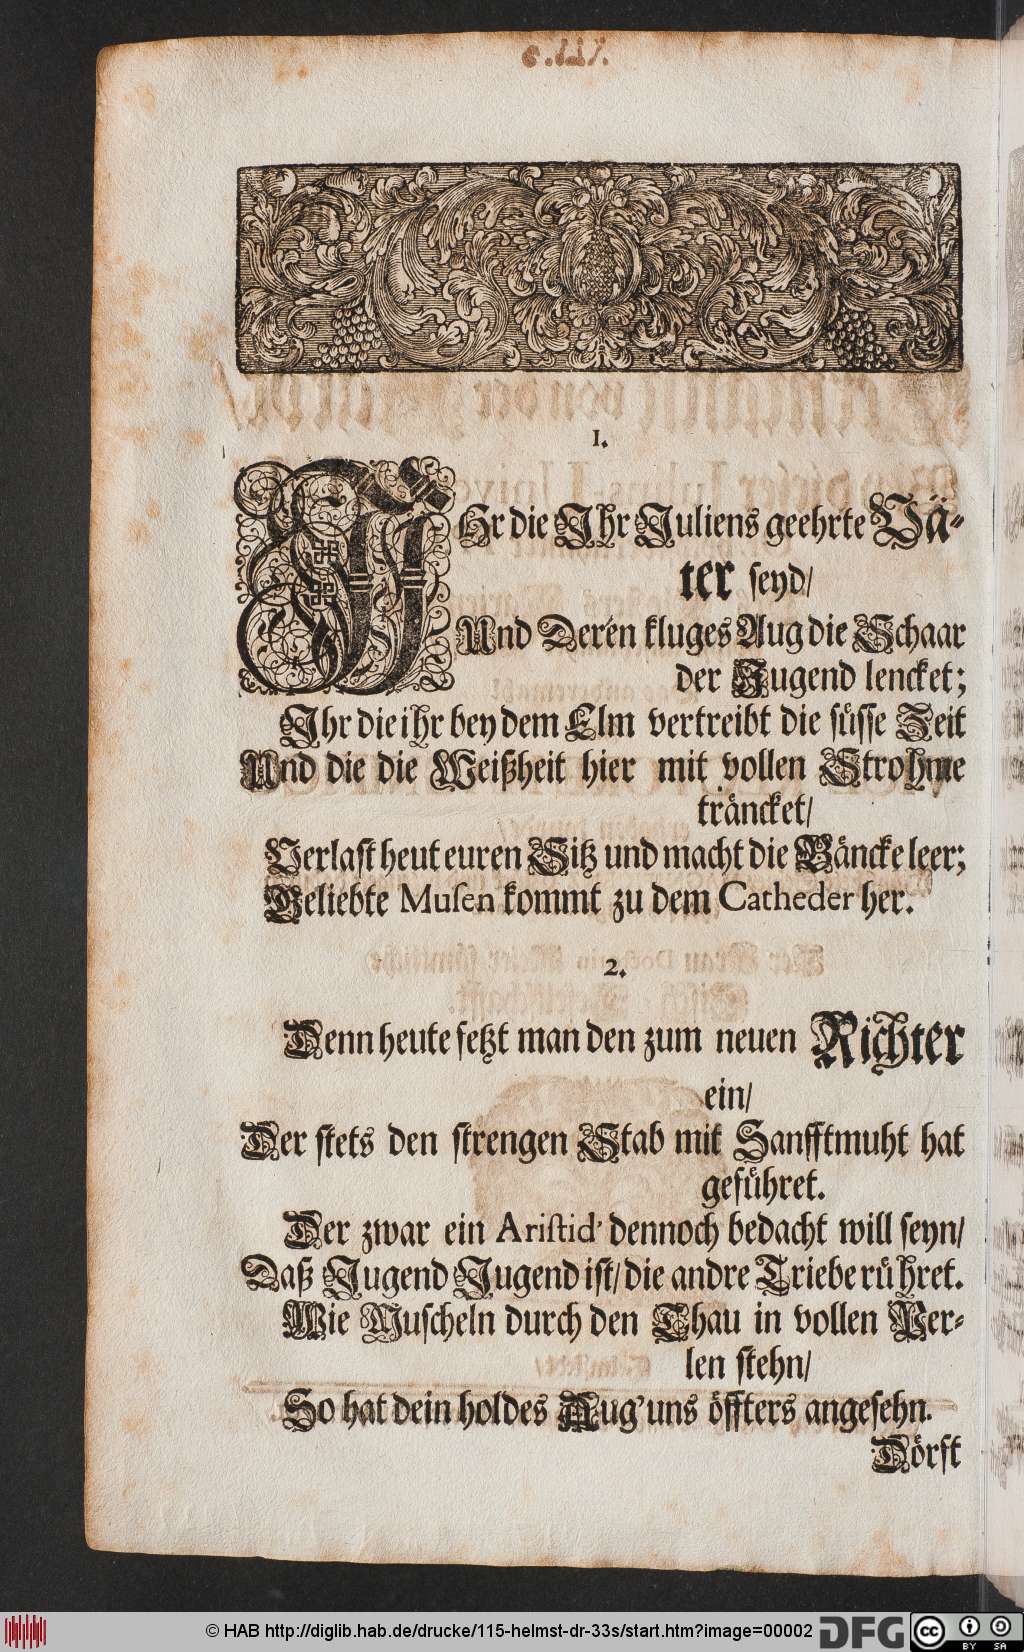 1.
IHr die Ihr Juliens geehrte Vä-
ter seyd/
Und Deren kluges Aug die Schaar
der Jugend lencket;
Ihr die ihr bey dem Elm vertreibt die süsse Zeit
Und die die Weißheit hier mit vollen Strohme
träncket/
Verlast heut euren Sitz und macht die Bäncke leer;
Geliebte Musen kommt zu dem Catheder her.
2.
Denn heute setzt man den zum neuen Richter
ein/
Der stets den strengen Stab mit Sanfftmuht hat
geführet.
Der zwar ein Aristid' dennoch bedacht will seyn/
Daß Jugend Jugend ist/ die andre Triebe rühret.
Wie Muscheln durch den Thau in vollen Per-
len stehn/
So hat dein holdes Aug' uns öffters angesehn.
Dörft
© HAB http://diglib.hab.de/drucke/115-helmst-dr-33s/start.htm?image=00002
DFG
cc
BY SA